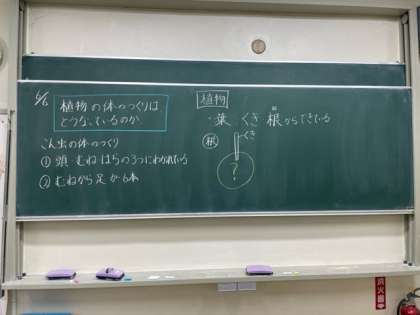 6/6
植物の体のつくりは
どうなっているのか
こん虫の体のつくり
① 頭・むね・はらの3つにわかれている
② むねから足が6本
植物
・葉 くき 根からできている
ね
根
くき
?
消火器